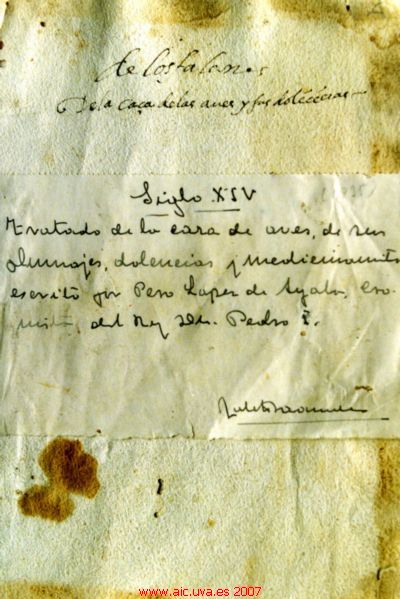 de los falcones
De la caça de las aves y sus dolẽcias
Siglo XIV
Tratado de la caza de aves, de sus
plumajes, dolencias y medicinamento
escrito por Pero Lopez de Ayala, Cro-
nista del Rey Dn. Pedro I.
www.aic.uva.es 2007